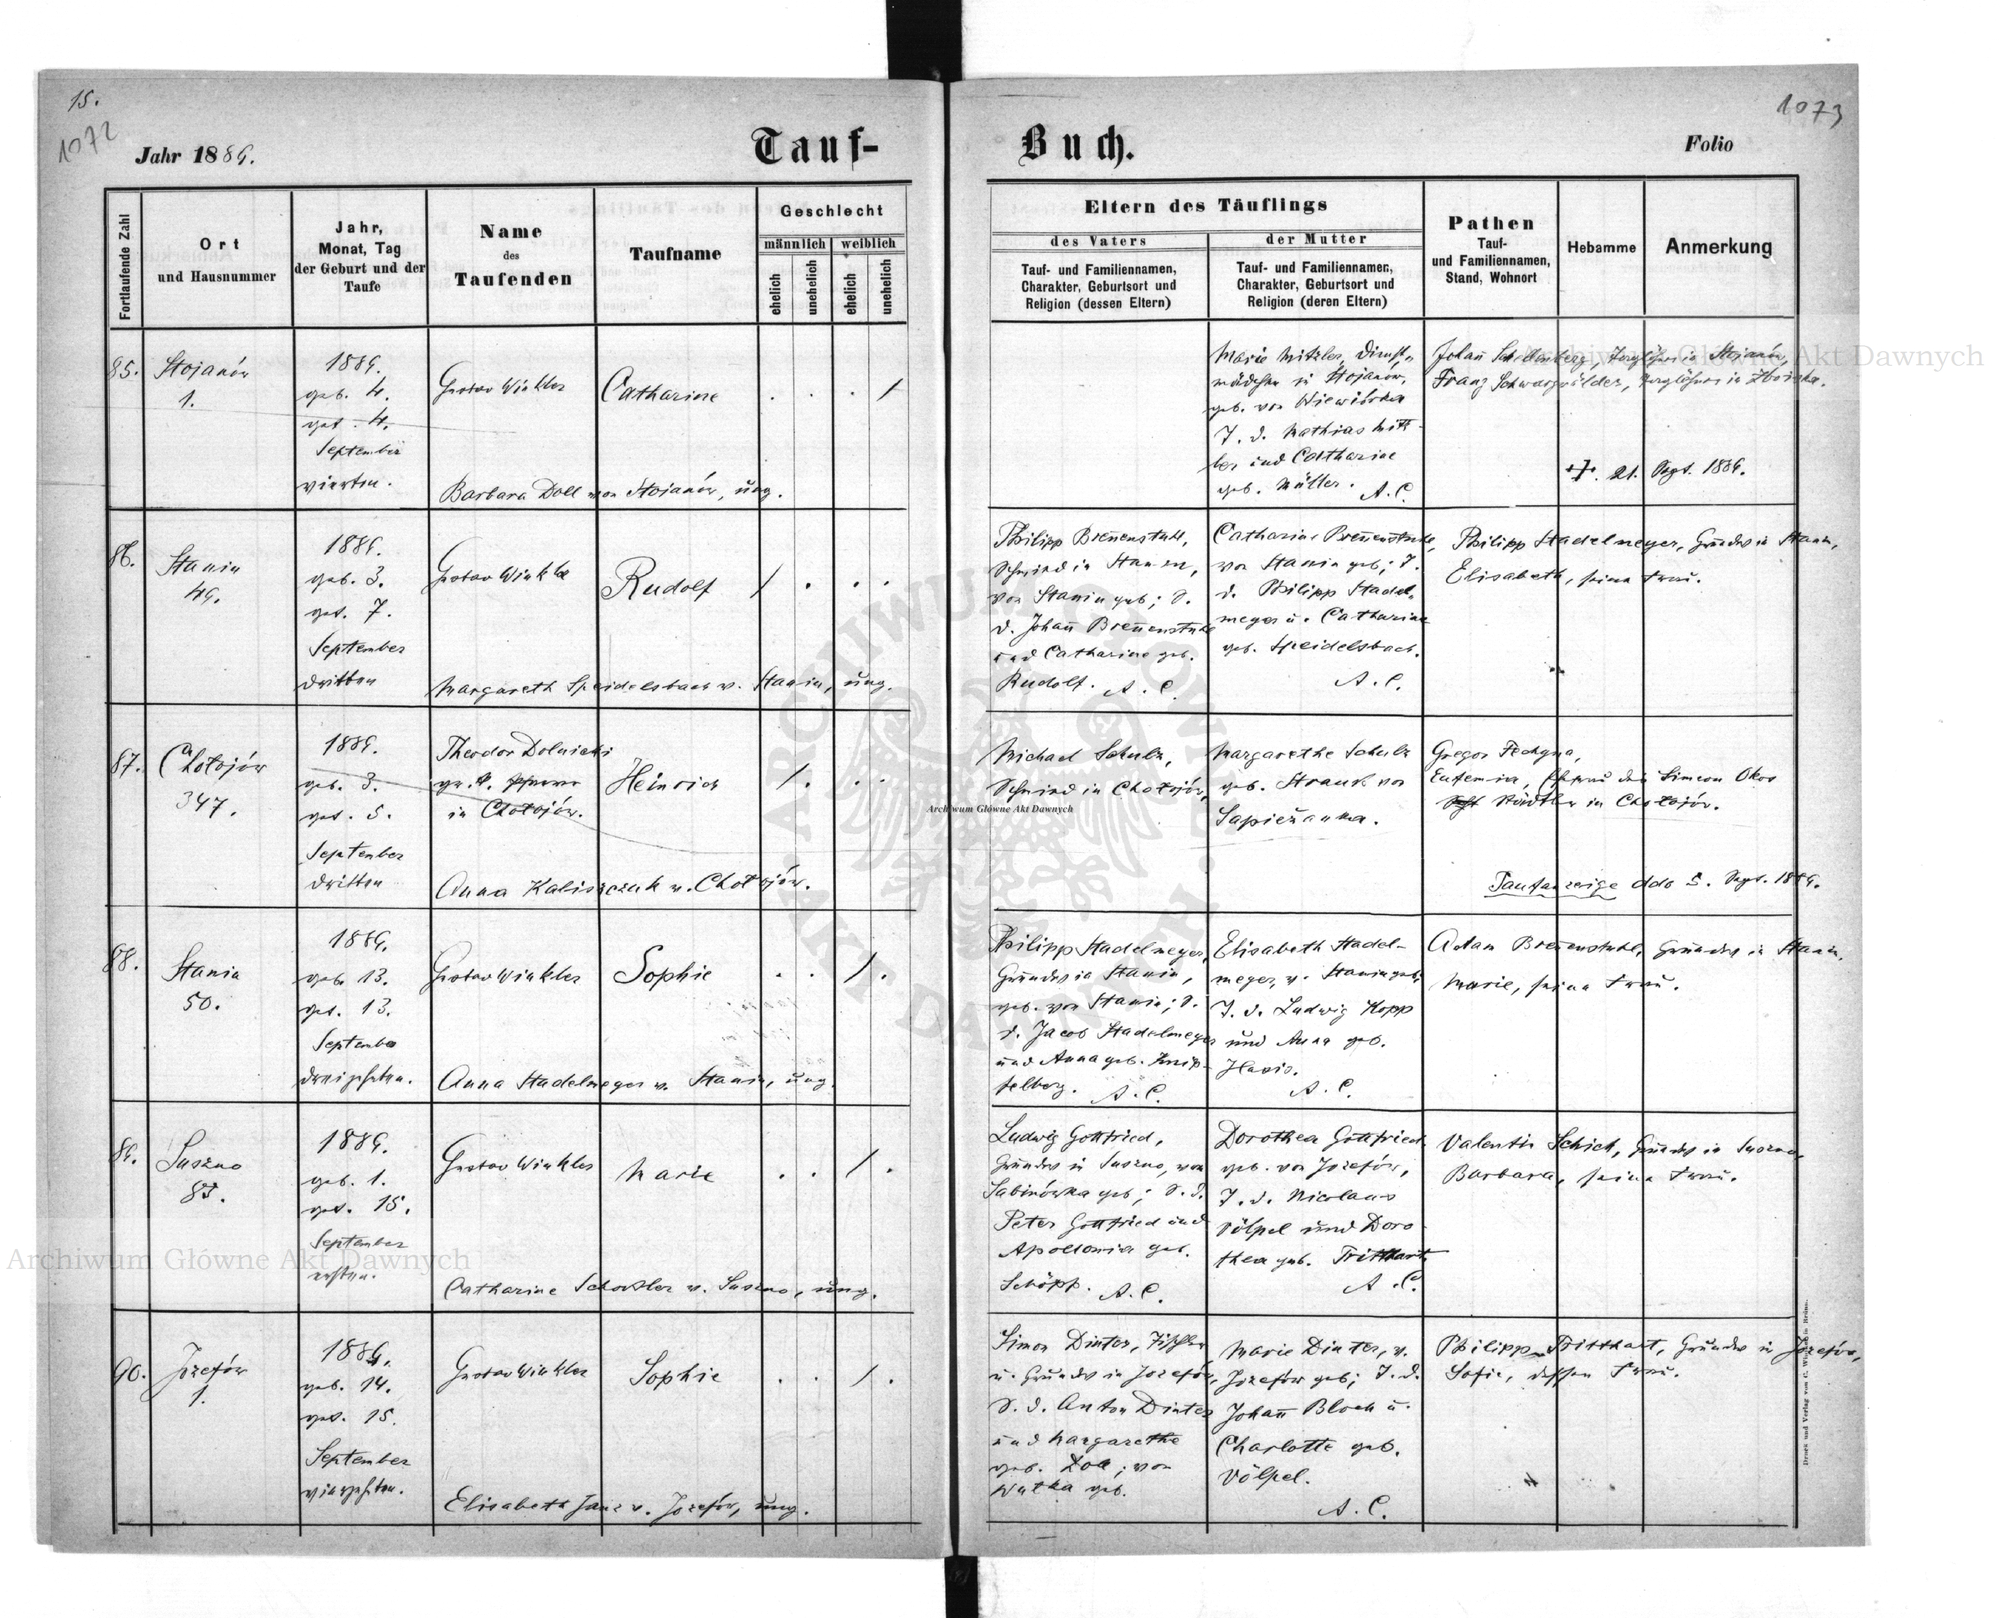 15.
1072
1073
Jahr 1889.
Tauf-
Buch.
Folio
Fortlaufende Zahl
Ort
und Hausnummer
Jahr,
Monat, Tag
der Geburt und der
Taufe
Name
des
Taufenden
Taufname
Geschlecht
männlich
weiblich
ehelich
unehelich
ehelich
unehelich
Eltern des Täuflings
des Vaters
der Mutter
Tauf- und Familiennamen,
Charakter, Geburtsort und
Religion (dessen Eltern)
Tauf- und Familiennamen,
Charakter, Geburtsort und
Religion (deren Eltern)
Pathen
Tauf-
und Familiennamen,
Stand, Wohnort
Hebamme
Anmerkung
85.
Stojanów
1.
1889.
geb. 4.
get. 4.
September
vierten.
Gustav Winkler
Catharine
Barbara Doll von Stojanów, ung.
Marie Mitzler, Dienst-
mädchen in Stojanów,
geb. von Wiewiórka
T. d. Mathias Mitz-
ler und Catharine
geb. Müller. A.C.
Johann Schellenberg, Taglöhner in Stojanów,
Franz Schwarzwälder, Taglöhner in
21. Sept. 1889.
86.
Stanin
49.
1889.
geb. 3.
get. 7.
September
dritten
Gustav Winkler
Rudolf
Margareth Speidelsbach v. Stanin, ung.
Philipp Brennenstuhl,
Schmied in Stanin,
von Stanin geb; S.
d. Johann Brennenstuhl
und Catharine geb.
Rudolf. A.C.
Catharine Brennenstuhl,
von Stanin geb; T.
d. Philipp Stadel-
meyer u. Catharine
geb. Speidelsbach.
A.C.
Philipp Stadelmeyer, Grundw in Stanin,
Elisabeth, seine Frau.
87.
Chołojów
347.
1889.
geb. 3.
get. 5.
September
dritten
Theodor Dolnicki
gr. k. Pfarrer
in Chołojów.
Heinrich
Anna Kaliszczuk v. Chołojów.
Michael Schulz,
Schmied in Chołojów,
Margarethe Schulz
geb. Strauss von
Sapieżanka.
Gregor Fechyna,
Eufemia, Ehefrau des Simeon Okos
Städtler in Chołojów.
Taufanzeige ddo 5. Sept. 1889.
88.
Stanin
50.
1889.
geb. 13.
get. 13.
September
dreizehnten.
Gustav Winkler
Sophie
Anna Stadelmeyer v. Stanin, ung.
Philipp Stadelmeyer,
Grundw in Stanin,
geb. von Stanin; S.
d. Jacob Stadelmeyer
und Anna geb. Knip-
felberg. A.C.
Elisabeth Stadel-
meyer, v. Stanin geb;
T. d. Ludwig Kopp
und Anna geb.
A.C.
Adam Brennenstuhl, Grundw in Stanin,
Marie, seine Frau.
89.
Suszno
85.
1889.
geb. 1.
get. 15.
September
ersten.
Gustav Winkler
Marie
Catharine Schodler v. Suszno, ung.
Ludwig Gottfried,
Grundw in Suszno, von
Sabinówka geb; S. d.
Peter Gottfried und
Apollonia geb.
Schöpp. A.C.
Dorothea Gottfried
geb. von Józefów,
T. d. Nicolaus
Völpel und Doro-
thea geb. Tritthart.
A.C.
Valentin Schick, Grundw in Suszno,
Barbara, seine Frau.
90.
Józefów
1.
1889.
geb. 14.
get. 15.
September
vierzehnten.
Gustav Winkler
Sophie
Elisabeth Janz v. Józefów, ung.
Simon Dinter, Tischler
u. Grundw in Józefów,
S. d. Anton Dinter
und Margarethe
geb. Doll; von
Wutka geb.
Marie Dinter, v.
Józefów geb; T. d.
Johann Bloch u.
Charlotte geb.
Völpel.
A.C.
Philipp Tritthart, Grundw in Józefów,
Sofie, dessen Frau.
Archiwum Główne Akt Dawnych
Archiwum Główne Akt Dawnych
Archiwum Główne Akt Dawnych